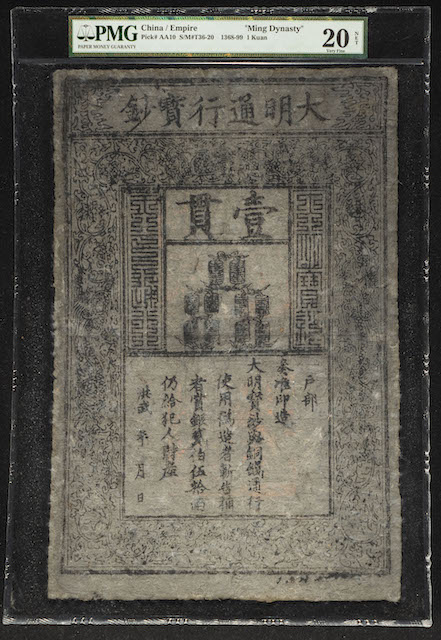 PMG
PAPER MONEY GUARANTY
China / Empire "Ming Dynasty"
Pick# AA10 S/M#T36-20 1368-99 1 Kuan
20 NET
Very Fine
大明通行寶鈔
壹貫
戶部
奏准印造
大明寶鈔與銅錢通行
使用偽造者斬告捕
者賞銀貳伯伍拾兩
仍給犯人財產
洪武 年 月 日